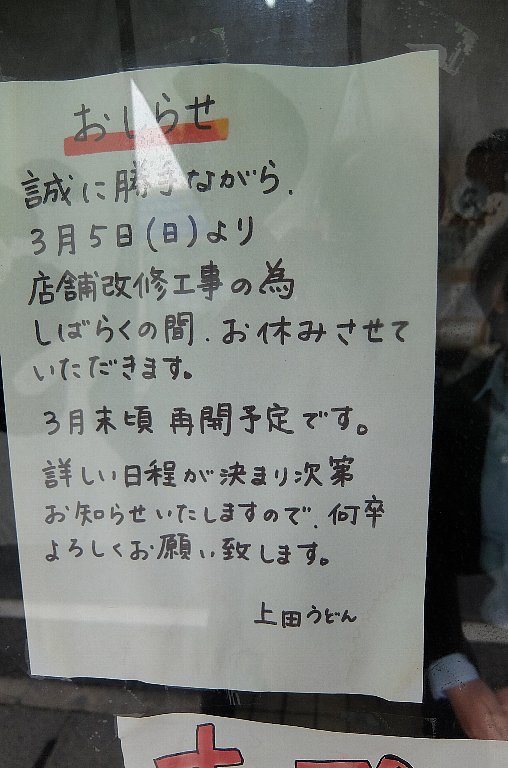 おしらせ
誠に勝手ながら、
3月5日(日)より
店舗改修工事の為
しばらくの間、お休みさせて
いただきます。
3月末頃 再開予定です。
詳しい日程が決まり次第
お知らせいたしますので、何卒
よろしくお願い致します。
上田うどん